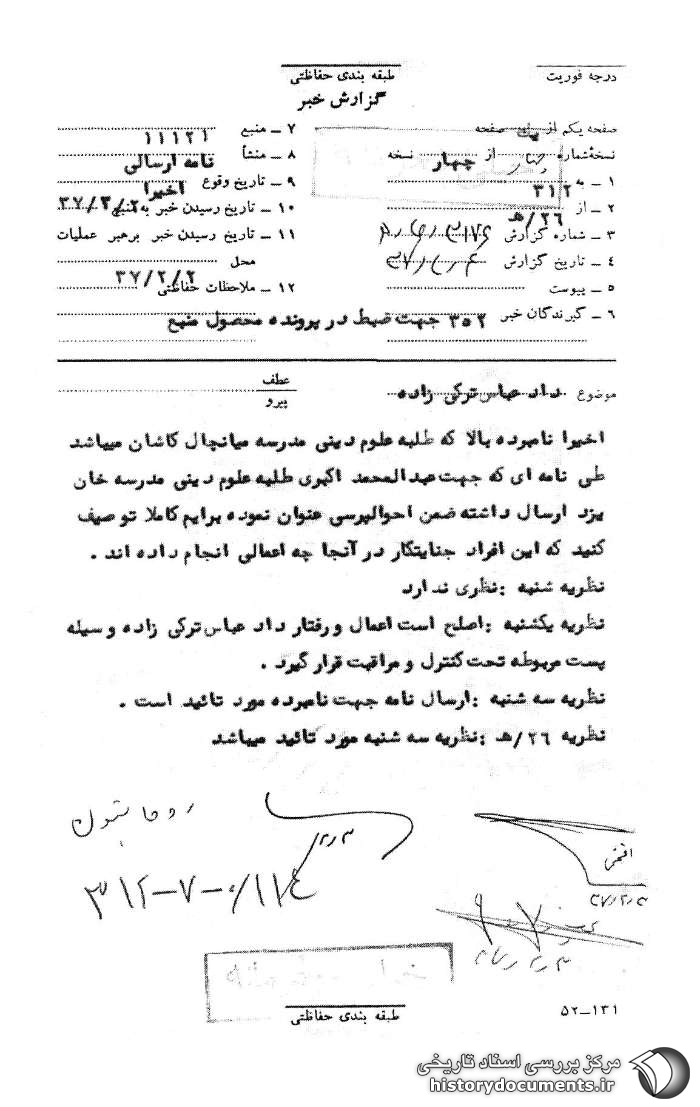 درجه فوریت
طبقه بندی حفاظتی
گزارش خبر
صفحه یکم از یک صفحه
نسخهٔ شماره چهار از چهار نسخه
۱ – به ۳۱۲
۲ – از ۲۶/هـ
۳ – شماره گزارش
۴ – تاریخ گزارش
۵ – پیوست
۶ – گیرندگان خبر ۳۵۲ جهت ضبط در پرونده محصول منبع
۷ – منبع ۱۱۱۲۱
۸ – منشأ نامه ارسالی
۹ – تاریخ وقوع اخیرا
۱۰ – تاریخ رسیدن خبر به منبع
۱۱ – تاریخ رسیدن خبر برهبر عملیات
محل ۳۷/۲/۲
۱۲ – ملاحظات حفاظتی
موضوع داد عباس ترکی زاده
عطف
پیرو
اخیرا نامبرده بالا که طلبه علوم دینی مدرسه میانچال کاشان میباشد
طی نامه ای که جهت عبدالمحمد اکبری طلبه علوم دینی مدرسه خان
یزد ارسال داشته ضمن احوالپرسی عنوان نموده برایم کاملا توصیف
کنید که این افراد جنایتکار در آنجا چه اعمالی انجام داده اند .
نظریه شنبه :نظری ندارد
نظریه یکشنبه :اصلح است اعمال و رفتار داد عباس ترکی زاده وسیله
پست مربوطه تحت کنترل و مراقبت قرار گیرد .
نظریه سه شنبه :ارسال نامه جهت نامبرده مورد تائید است .
نظریه ۲۶/هـ :نظریه سه شنبه مورد تائید میباشد
طبقه بندی حفاظتی
۵۲–۱۳۱
مرکز بررسی اسناد تاریخی
historydocuments.ir